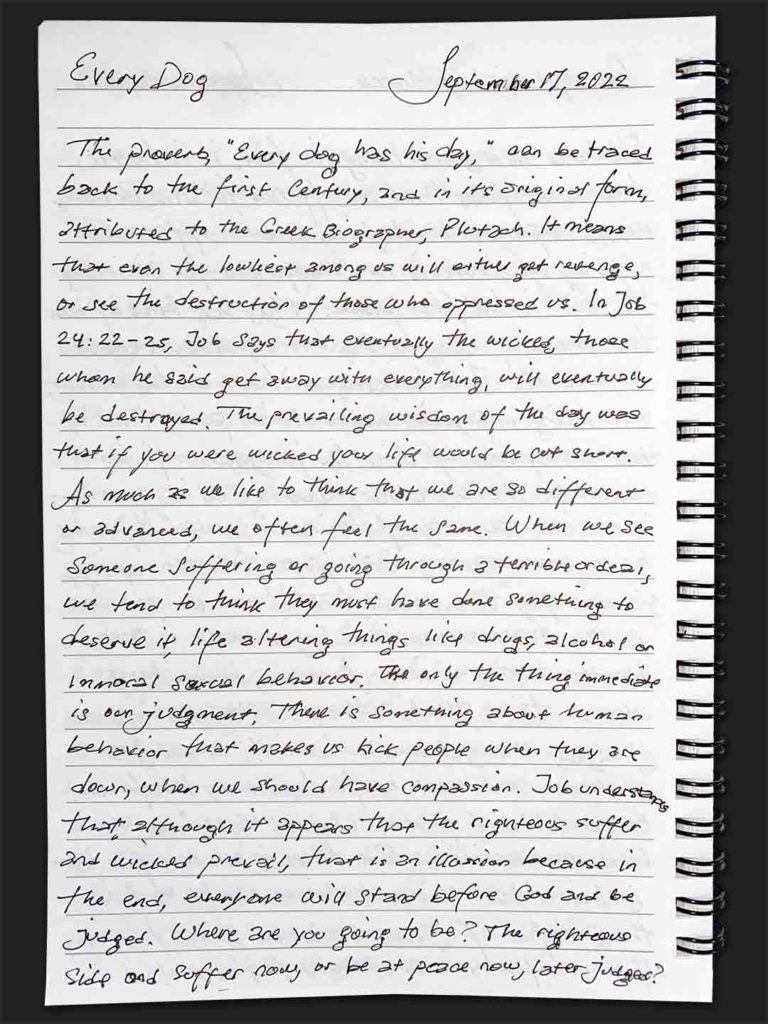 Every Dog September 17, 2022
The proverb, "Every dog has his day," can be traced
back to the first Century, and in its original form,
attributed to the Greek Biographer, Plutach. It means
that even the lowliest among us will either get revenge,
or see the destruction of those who oppressed us. In Job
24:22-25, Job says that eventually the wicked, those
whom he said get away with everything, will eventually
be destroyed. The prevailing wisdom of the day was
that if you were wicked your life would be cut short.
As much as we like to think that we are so different
or advanced, we often feel the same. When we see
someone suffering or going through a terrible ordeal,
we tend to think they must have done something to
deserve it, life altering things like drugs, alcohol or
immoral sexual behavior. The only the thing immediate
is our judgment. There is something about human
behavior that makes us kick people when they are
down, when we should have compassion. Job understands
that, although it appears that the righteous suffer
and wicked prevail, that is an illusion because in
the end, everyone will stand before God and be
judged. Where are you going to be? The righteous
side and suffer now, or be at peace now, later judged?